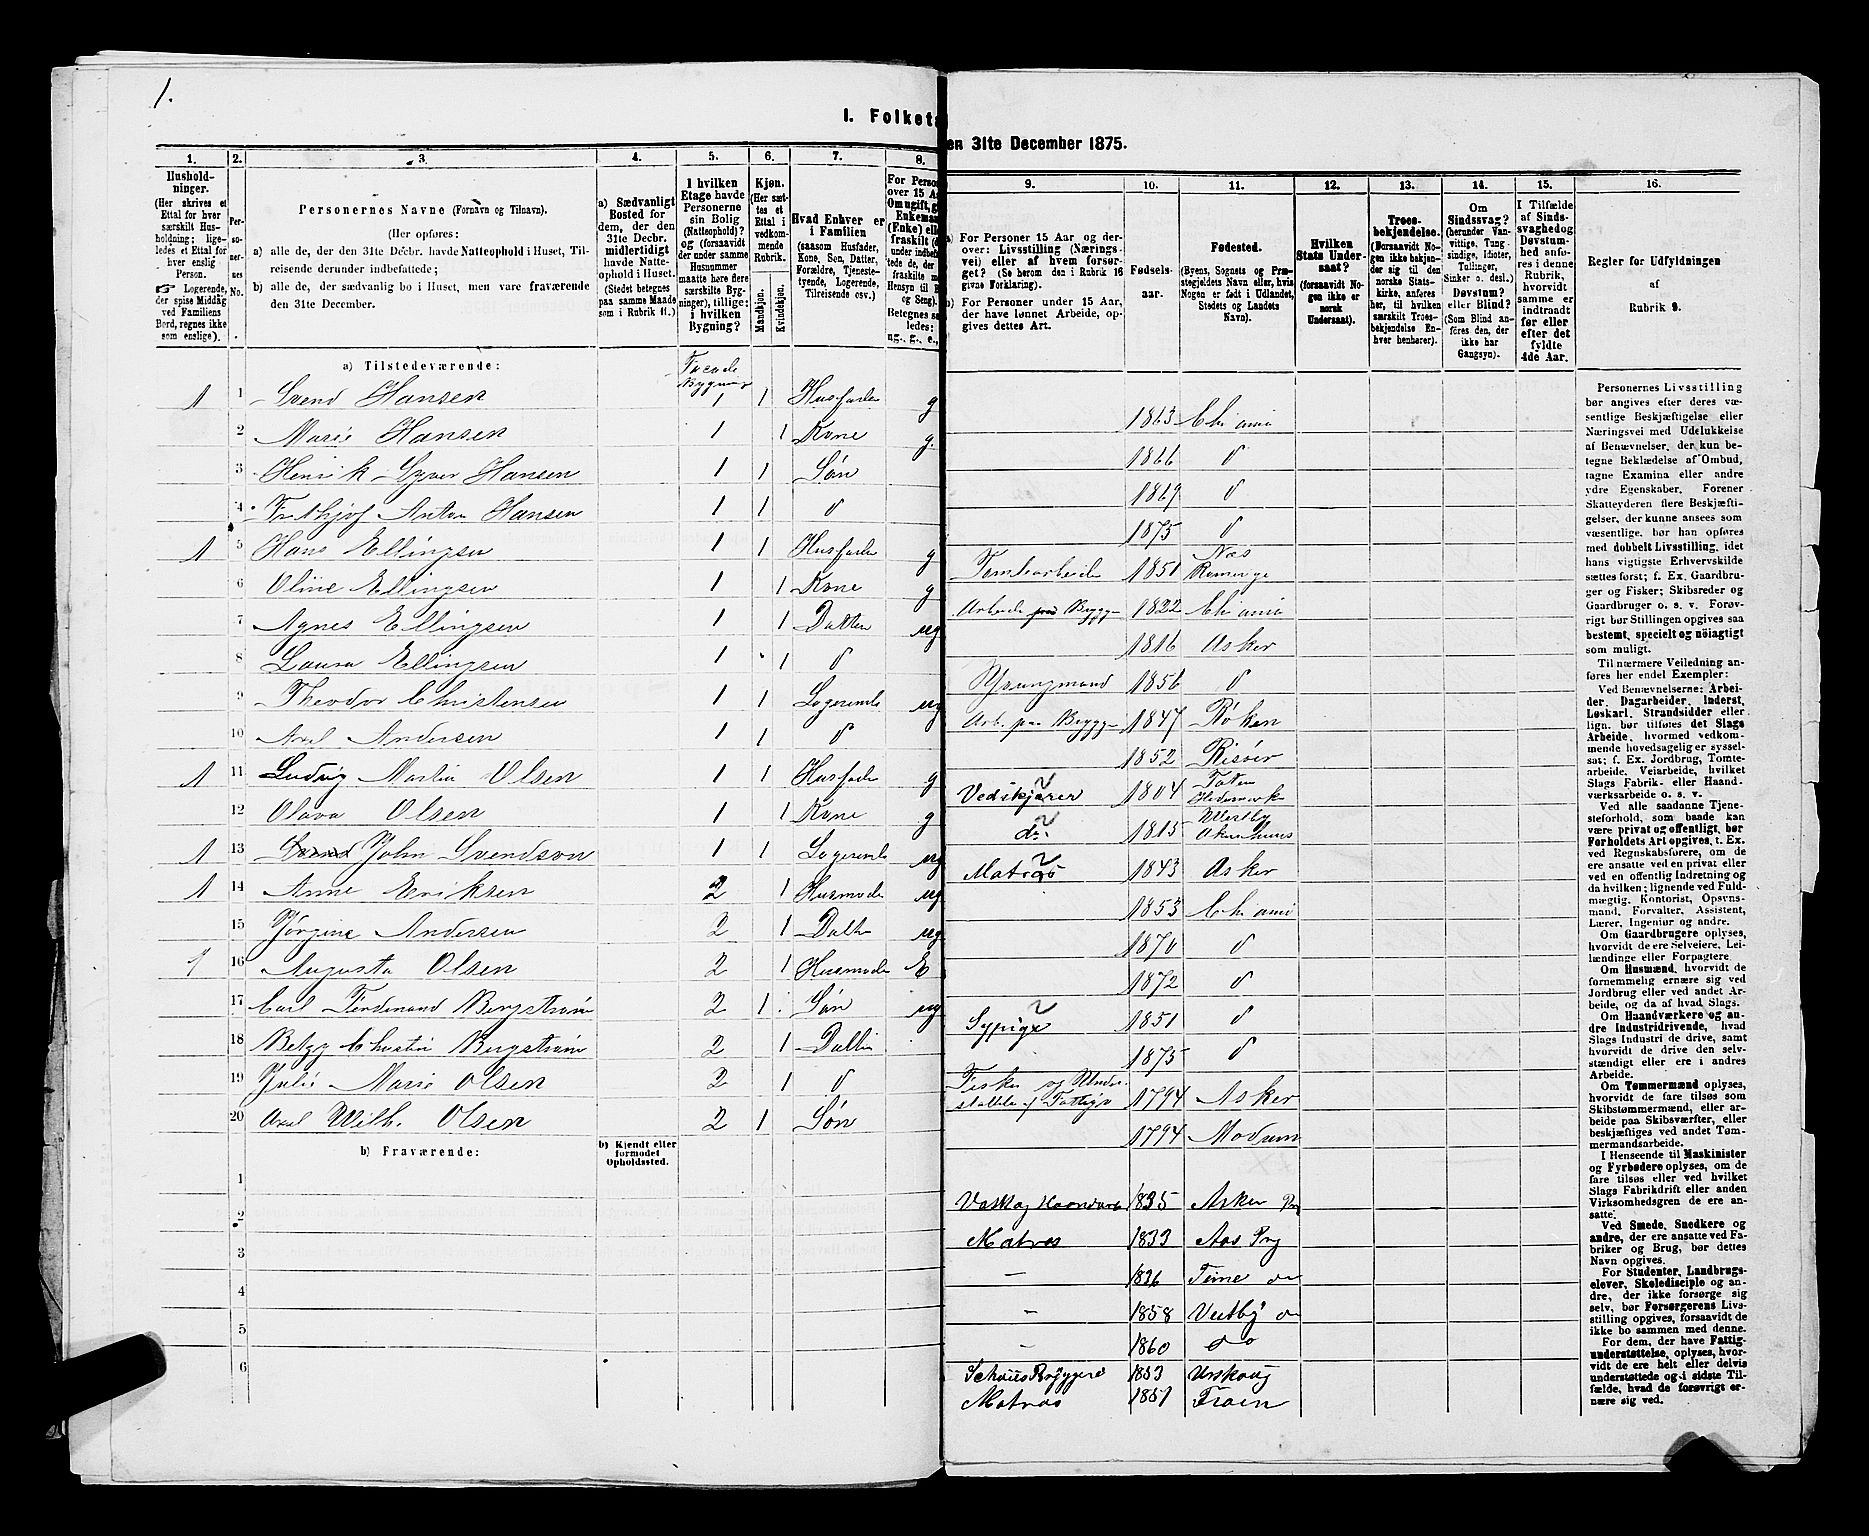 1.
I. Folketæ
en 31te December 1875.
1.
Hushold-
ninger.
(Her skrives et
Ettal for hver
særskilt Hus-
holdning; lige-
ledes et Ettal for
hver enslig
Person.
☞ Logerende,
der spise Middag
ved Familiens
Bord, regnes ikke
som enslige).
2.
Per-
so-
ner-
nes
No.
3.
Personernes Navne (Fornavn og Tilnavn).
(Her opføres:
a) alle de, der den 31te Decbr. havde Natteophold i Huset, Til-
reisende derunder indbefattede;
b) alle de, der sædvanlig bo i Huset, men vare fraværende
den 31te December.
4.
a) Sædvanligt
Bosted for
dem, der den
31te Decbr.
midlertidigt
havde Natte-
ophold i Huset.
(Stedet betegnes
paa samme Maade
som i Rubrik 11.)
5.
I hvilken
Etage havde
Personerne
sin Bolig
(Natteophold)?
og (forsaavidt
der under samme
Husnummer
maatte høre flere
særskilte Byg-
ninger), tillige:
i hvilken
Bygning?
6.
Kjøn.
(Her sæt-
tes et
Ettal i
vedkom-
mende
Rubrik.
Mandkjøn.
Kvindekjøn.
7.
Hvad Enhver er
i Familien
(saasom Husfader,
Kone, Søn, Datter,
Forældre, Tjeneste-
tyende, Logerende,
Tilreisende osv.)
8.
For Person
over 15 A
Om ugift, g
Enkeman
(Enke) elle
fraskilt (d
under indbe
tede de, de
fraskilte
Hensyn til B
og Seng).
Betegnes sa
ledes:
ug., g., e.,
9.
For Personer 15 Aar og der-
over: Livsstilling (Nærings-
vei) eller af hvem forsør-
get? (Se herom den i Rubrik 16
givne Forklaring).
For Personer under 15 Aar,
der have lønnet Arbeide, op-
gives dettes Art.
10.
Fødsels-
aar.
11.
Fødested.
(Byens, Sognets og Præ-
stegjeldets Navn eller, hvis
Nogen er født i Udlandet,
Stedets og Landets
Navn).
12.
Hvilken
Stats Under-
saat?
(forsaavidt No-
gen ikke er
norsk
Undersaat).
13.
Troes-
bekjendelse.
(Forsaavidt No-
gen ikke bekjen-
der sig til den
norske Stats-
kirke, anføres
her, til hvilken
særskilt Troes-
bekjendelse En-
hver henhører).
14.
Om
Sindssvag?
(herunder Van-
vittige, Tung-
sindige, Idioter,
Tullinger,
Sinker o. desl.)
Døvstum?
eller Blind?
(Som Blind an-
føres den, der
ikke har
Gangsyn).
15.
I Tilfælde
af Sinds-
svaghed og
Døvstum-
hed anfø-
res i denne
Rubrik,
hvorvidt
samme er
indtraadt
før eller
efter det
fyldte
4de Aar.
16.
Regler for Udfyldningen
af
Rubrik 9.
a) Tilstedeværende:
1 1 Svend Hansen 1 1 Husfader g
2 Marie Hansen 1 1 Kone g.
3 Henrik Syver Hansen 1 1 Søn
4 Frithjof Anton Hansen 1 1 d
1 5 Hans Ellingsen 1 1 Husfader g
6 Oline Ellingsen 1 1 Kone g
7 Agnes Ellingsen 1 1 Datter ug
8 Laura Ellingsen 1 1 d
9 Theodor Christensen 1 1 Logerende ug
10 Axel Andersen 1 1 d
1 11 Ludvig Martin Olsen 1 1 Husfader g
12 Olava Olsen 1 1 Kone g
1 13 John Svendson 1 1 Logerende ug
1 14 Anne Eriksen 2 1 Husmoder ug
15 Jørgine Andersen 2 1 Datter ug
1 16 Augusta Olsen 2 1 Husmoder E
17 Carl Ferdinand Bergstrøm 2 1 Søn ug
18 Betzy Christin Bergstrøm 2 1 Datter
19 Julie Marie Olsen 2 1 d
20 Axel Wilh. Olsen 2 1 Søn
b) Fraværende:
b) Kjendt eller
formodet
Opholdssted.
1
2
3
4
5
6
1863 Chr ania
1866 d
1869 d
1875 d
Tomtearbeider 1851 Næs Romerige
Arbeider paa Brygge 1822 Chr ania
1816 Asker
1856 d
Arb. paa Brygge 1847 Røken
1852 Risør
Vedskjærer 1804 Toten Hedemark
do. 1815
Matros 1843 Asker
1853 Chr ania
1870 d
1872 d
Sypige 1851 d
1875 d
Fisker og Under-
støttet af Fattigv 1794 Asker
1794 Modum
Vask og Haandarb 1835 Asker Prg
Matros 1833 Aas Prg
— 1836
— 1858 Vestby do
— 1860 do
Schous Bryggeri 1853 Urskoug
Matros 1851
Personernes Livsstilling
bør angives efter deres væ-
sentlige Beskjæftigelse eller
Næringsvei med Udelukkelse
af Benævnelser, der kun be-
tegne Beklædelse af Ombud,
tagne Examina eller andre
ydre Egenskaber. Forener
Skatteyderen flere Beskjæfti-
gelser, der kunne ansees som
væsentlige, bør han opføres
med dobbelt Livsstilling, idet
hans vigtigste Erhvervskilde
sættes først; f. Ex. Gaardbru-
ger og Fisker; Skibsreder og
Gaardbruger o. s. v. Forøv-
rigt bør Stillingen opgives saa
bestemt, specielt og nøiagtigt
som muligt.
Til nærmere Veiledning an-
føres her endel Exempler:
Ved Benævnelserne: Arbei-
der, Dagarbeider, Inderst,
Løskarl, Strandsidder eller
lign. bør tilføies det Slags
Arbeide, hvormed vedkom-
mende hovedsagelig er syssel-
sat; f. Ex. Jordbrug, Tomte-
arbeide, Veiarbeide, hvilket
Slags Fabrik- eller Haand-
værksarbeide o. s. v.
Ved alle saadanne Tjene-
steforhold, som baade kan
være privat og offentlig, bør
Forholdets Art opgives, t. Ex.
ved Regnskabsførere, om de
ere ansatte ved en privat eller
ved en offentlig Indretning og
da hvilken; lignende ved Fuld-
mægtig, Kontorist, Opsyns-
mand, Forvalter, Assistent,
Lærer, Ingeniør og andre.
Om Gaardbrugere oplyses,
hvorvidt de ere Selveiere, Lei-
lændinge eller Forpagtere.
Om Husmænd, hvorvidt de
fornemmelig ernære sig ved
Jordbrug eller ved andet Ar-
beide, og da af hvad Slags.
Om Haandværkere og an-
dre Industridrivende, hvad
Slags Industri de drive, samt
hvorvidt de drive den selv-
stændigt eller ere i andres
Arbeide.
Om Tømmermænd oplyses,
hvorvidt de fare tilsøs som
Skibstømmermænd, eller ar-
beide paa Skibsværfter, eller
beskjæftiges ved andet Tøm-
mermandsarbeide.
I Henseende til Maskinister
og Fyrbødere oplyses, om de
fare tilsøs eller ved hvilket
Slags Fabrikdrift eller anden
Virksomhedsgren de ere an-
satte.
Ved Smede, Snedkere og
andre, der ere ansatte ved Fa-
briker og Brug, bør dettes
Navn opgives.
For Studenter, Landbrugs-
elever, Skoledisciple og an-
dre, der ikke forsørge sig
selv, bør Forsørgerens Livs-
stilling opgives, forsaavidt de
ikke bo sammen med denne.
For dem, der have Fattig-
understøttelse, oplyses, hvor-
vidt de ere helt eller delvis
understøttede og i sidste Til-
fælde, hvad de forøvrigt er-
nære sig ved.